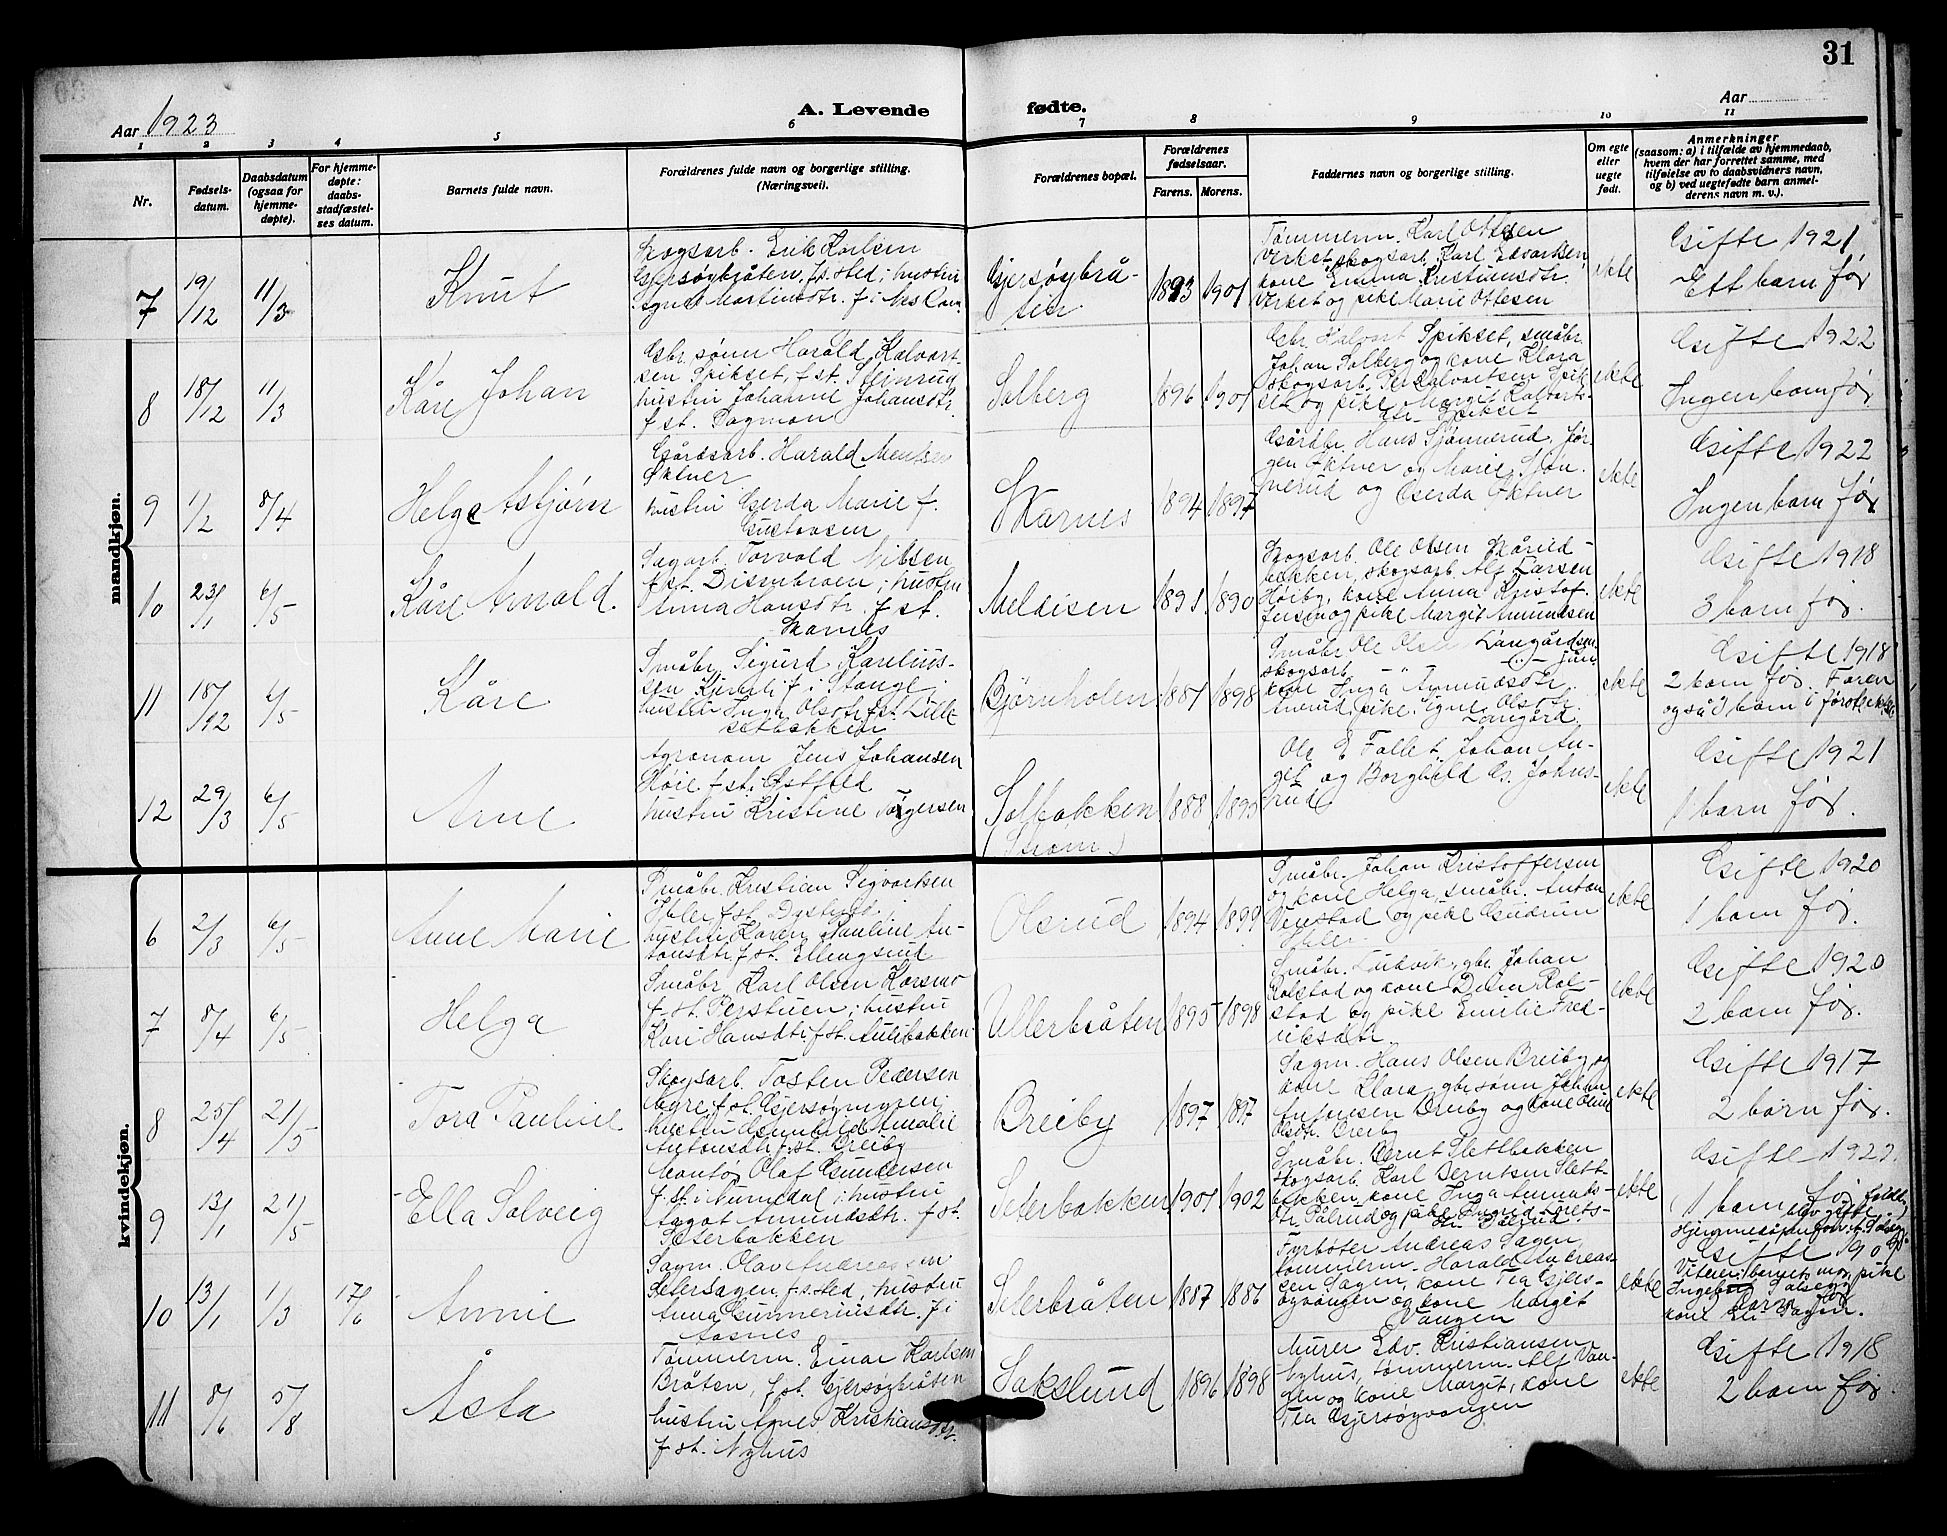 31
A. Levende fødte.
Aar 1923
Aar
1 2 3 4 5 6 7 8 9 10 11
Nr.
Fødsels-
datum.
Daabsdatum
(ogsaa for
hjemme-
døpte).
For hjemme-
døpte:
daabs-
stadfæstel-
ses datum.
Barnets fulde navn.
Forældrenes fulde navn og borgerlige stilling.
(Næringsvei).
Forældrenes bopæl.
Forældrenes
fødselsaar.
Farens. Morens.
Faddernes navn og borgerlige stilling.
Om egte
eller
uegte
født.
Anmerkninger
(saasom: a) i tilfælde av hjemmedaab,
hvem der har forrettet samme, med
tilføielse av to daabsvidners navn,
og b) ved uegtefødte barn anmel-
derens navn m. v.).
mandkjøn.
7 19/12 11/3 Knut
Skogsarb. Erik Karlsen
Gjersøybråten, f. sted; hustru
Signe Martinsdtr. f. i Nes Rom.
Gjersøybrå-
ten 1893 1901
Tømmerm. Karl Ottesen
Virket, skogsarb. Karl Edvartsen,
kone Emma Kristiansdtr.
Virket og pike Marie Ottesen
ekte
Gifte 1921
Ett barn før
8 18/12 11/3 Kåre Johan
Gbr. sønn Harald Halvart-
sen Spikset, f. st. Steinrud
hustru Johanne Johansdtr.
f. st. Dagmon
Solberg 1896 1901
Gbr. Halvart Spikset, småbr.
Johan Solberg og kone Klara
skogsarb. Per Halvartsen Spik-
set og pike Margit Halvarts-
dtr. Spikset
ekte
Gifte 1922
Ingen barn før
9 1/2 8/4 Helge Asbjørn
Gårdsarb. Harald Mentsen
Øktner
hustru Gerda Marie f.
Gustavsen
Skarnes 1894 1897
Gårdbr. Hans Sjønnerud, Jør-
gen Øktner og Marie Sjøn-
nerud og Gerda Øktner
ekte
Gifte 1922
Ingen barn før
10 23/1 6/5 Kåre Arnold.
Sagarb. Torvald Nilsen
f. st. Disenbroen; hustru
Anna Hansdtr. f. st.
Skarnes
Meldisen 1891 1890
Skogsarb. Ole Olsen Skårud-
bakken, skogsarb. Alf Larsen
Høiby, kone Anna Kristof-
fersen og pike Margit Amundsen
ekte
Gifte 1918
3 barn før.
11 18/12 6/5 Kåre
Småbr. Sigurd Karelius-
sen f. i Stange;
hustru Inga Olsdtr. f. st. Lille-
seterbakken
Bjørnholen 1881 1898
Småbr. Ole Olsen Langårdsen
skogsarb. — " — jun.
kone Inga Amundsdtr.
pike Signe Olsdtr.
Langård
ekte
Gifte 1918
2 barn før. Faren
også 1 barn i første ekte
12 29/3 6/5 Arne
Agronom Jens Johansen
Høie f. st. i Østfold
hustru Kristine Torgersen
Solbakken 1888 1895
(Strøm)
Ole E Falle t Johan An-
get og Borghild G. Johns-
rud
ekte
Gifte 1921
1 barn før
kvindekjøn.
6 2/3 6/5 Anne Marie
Småbr. Kristian Sigvartsen
Ihler f. st. Dysterud
hustru Karen Pauline An-
tonsdtr. f. st. Ellingsrud
Olsrud 1894 1899
Småbr. Johan Kristoffersen
og kone Helga, småbr. Anton
Verstad og pike Gudrun
Ihler
ekte
Gifte 1920
1 barn før.
7 8/4 6/5 Helga
Småbr. Karl Olsen Korsmo
f. st. Perstuen; hustru
Kari Hansdtr. f. st. Aulibakken
Ullerbråten 1895 1898
Småbr. Ludvik, gbr. Johan
Rolstad og kone Delin Rol-
stad og pike Emilie Fred-
riksdtr.
ekte
Gifte 1920
2 barn før.
8 25/4 21/5 Tora Pauline
Skogsarb. Tosten Pedersen
Myre, f. st. Gjersøymyren;
hustru Gunhild Amalie
Antonsdtr. f. st. Breiby
Breiby 1897 1897
Sagm. Hans Olsen Breiby og
kone Klara, gbr. sønn Johan
Antonsen Breiby og kone Oline
Olsdtr. Breiby
ekte
Gifte 1917
2 barn før.
9 13/1 21/5 Ella Solveig
Kantor Olaf Gundersen
f. st. i Numedal; hustru
Aagot Amundsdtr. f. st.
Seterbakken
Seterbakken 1901 1902
Småbr. Bernt Slettbakken
Skogsarb. Karl Berntsen Slett-
bakken, kone Inga Amunds-
dtr. Pålsrud og pike Ingrid
dtr. Pålsrud.
ekte
Gifte 1922.
1 barn før
10 13/1 1/3 17/6 Annie
Sagm. Olav Andreassen
Setersagen, f. sted, hustru
Anna Gunneriusdtr. f. i
Aasnes
Seterbråten 1887 1886
Fyrbøter Andreas Sagen,
tømmerm. Harald Andreas-
sen Sagen, kone Tea Gjers-
øyvangen og kone Margit
Vangen
ekte
Gifte 1909
Vitner: barnets mor, pike
Ingeborg Solberg
kone Sagen.
11 8/6 5/8 Åsta
Tømmerm. Einar Karlsen
Bråten, f. st. Gjersøybråten
hustru Agnes Kristiansdtr.
f. st. Nyhus
Sakslund 1896 1898
Murer Edv. Kristiansen
Nyhus, tømmerm. Alf Van-
gen og kone Margit, kone
Tea Gjersøyvangen
ekte
Gifte 1918
2 barn før.